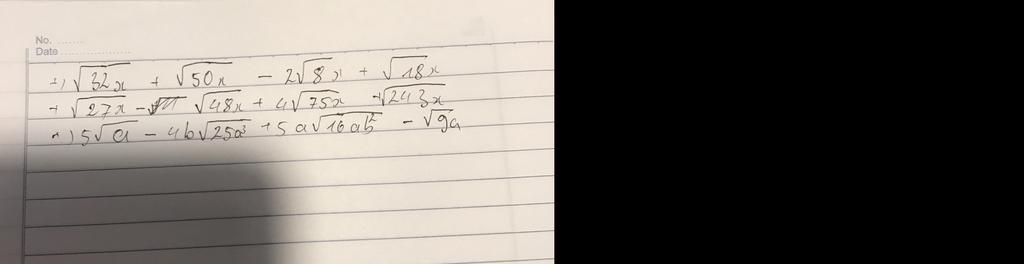 No. ........
Date ....................
+) √32x + √50x - 2√8x + √18x
+ √27x - √48x + 4√75x + √243x
+) 5√a - 4b√25a³ + 5a√16ab² - √9a